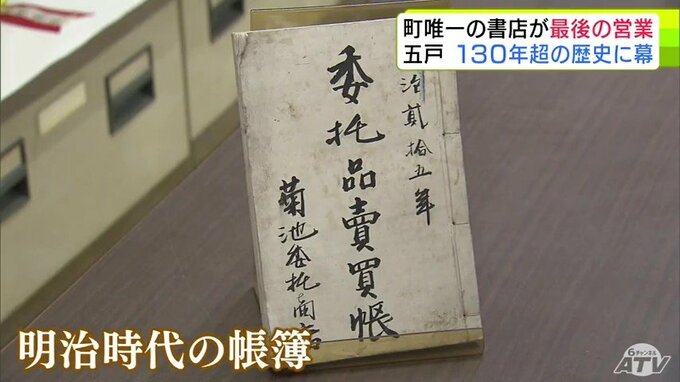 町唯一の書店が最後の営業
五戸 130年超の歴史に幕
治貳拾五年
委托品賣買帳
菊池委托商店
明治時代の帳簿
6チャンネル
ATV